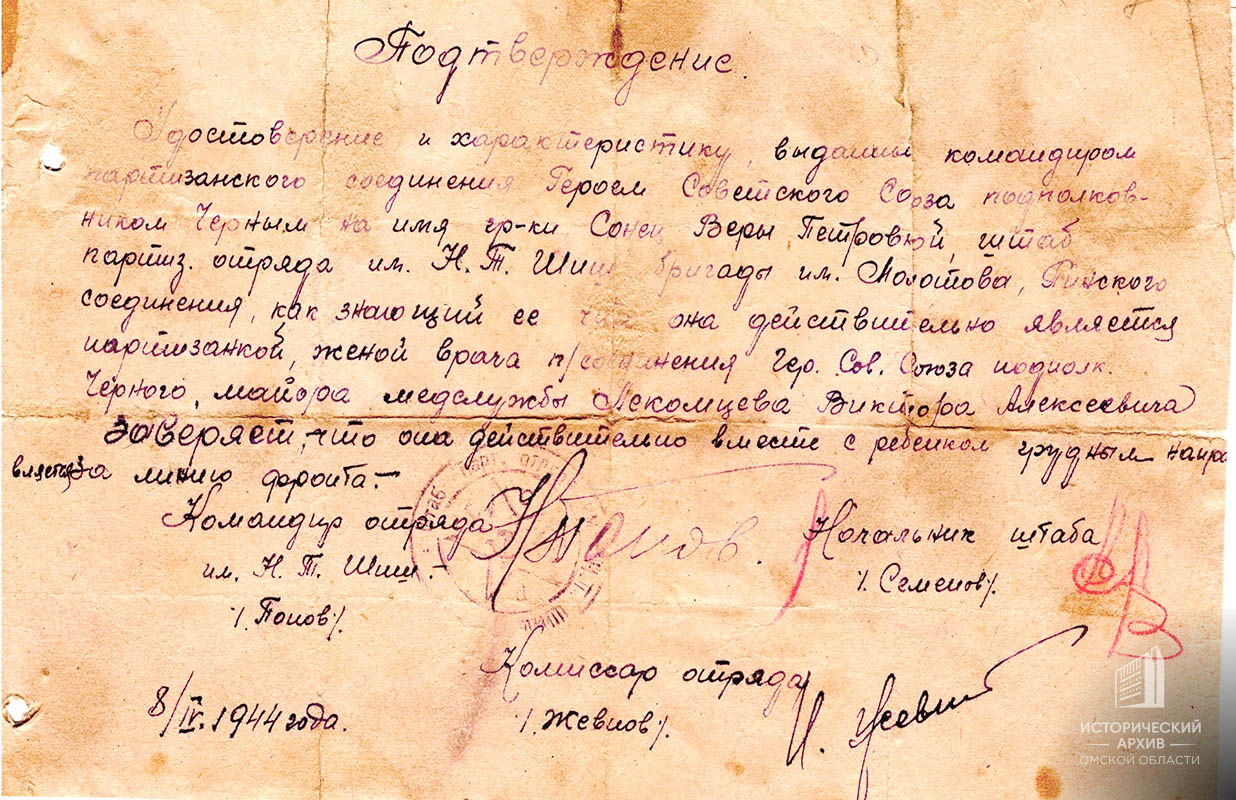 Подтверждение.
Удостоверение и характеристику, выданные командиром
партизанского соединения Героем Советского Союза подполков-
ником Черным на имя гр-ки Сонец Веры Петровной, штаб
партиз. отряда им. Н. Т. Шиш бригады им. Молотова, Пинского
соединения, как знающий ее что она действительно является
партизанкой, женой врача п/соединения Гер. Сов. Союза подполк.
Черного, майора медслужбы Лекомцева Виктора Алексеевича
Заверяет, что она действительно вместе с ребенком грудным напра
вляется за линию фронта.-
Командир отряда
им. Н. Т. Шиш.-
/. Попов/.
Попов.
Начальник штаба
/. Семенов/.
Комиссар отряда
/. Жевнов/.
8/IV. 1944 года.
ИСТОРИЧЕСКИЙ
АРХИВ
ОМСКОЙ ОБЛАСТИ